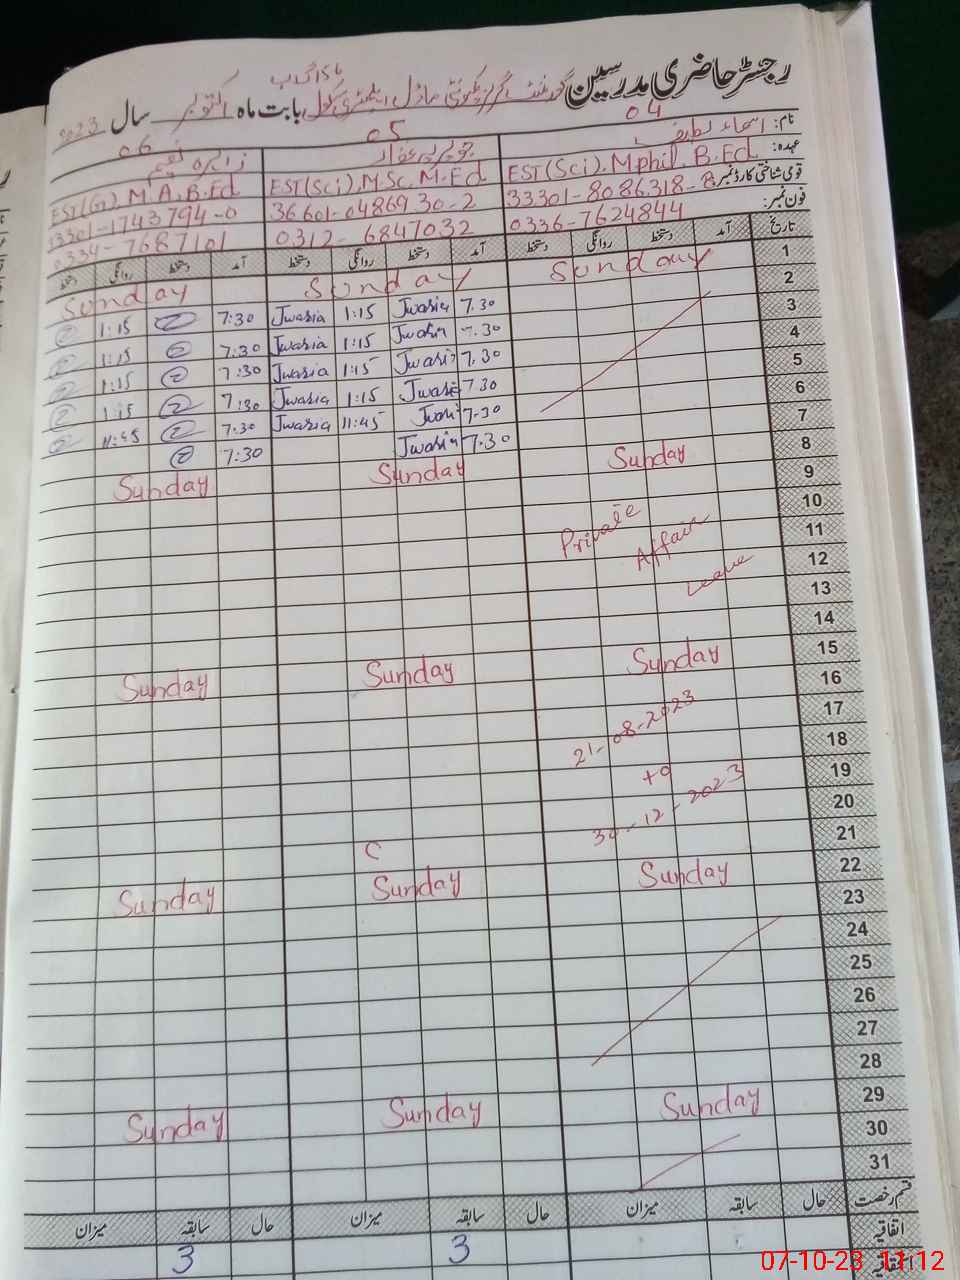 رجسٹر حاضری مدرسین گورنمنٹ گرلز کمیونٹی ماڈل ایلیمنٹری سکول بابت ماہ اکتوبر سال 2023
04 05 06
نام: اسماء لطیف جویریہ غفار زائرہ نعیم
عہدہ: EST(Sci), Mphil, B.Ed EST(Sci), M.Sc, M.Ed EST(G), M.A, B.Ed
قومی شناختی کارڈ نمبر: 33301-8086318-8 36601-0486930-2 33301-1743794-0
فون نمبر: 0336-7624844 0312-6847032 0334-7687101
تاریخ آمد دستخط روانگی دستخط آمد دستخط روانگی دستخط آمد دستخط روانگی دستخط
1 Sunday Sunday Sunday
2 7.30 Jwaria 1:15 Jwaria 7:30 1:15
3 7.30 Jwaria 1:15 Jwaria 7:30 1:15
4 7.30 Jwaria 1:15 Jwaria 7:30 1:15
5 7.30 Jwaria 1:15 Jwaria 7:30 1:15
6 7.30 Jwaria 11:45 Jwaria 7:30 11:45
7 7.30 Jwaria 7:30
8 Sunday Sunday Sunday
9
10 Private
11 Affair
12 Leave
13
14
15 Sunday Sunday Sunday
16
17 21-08-2023
18
19 to
20 30-12-2023
21 C
22 Sunday Sunday Sunday
23
24
25
26
27
28
29 Sunday Sunday Sunday
30
31
قسم رخصت حال سابقہ میزان حال سابقہ میزان حال سابقہ میزان
اتفاقیہ 3 3
07-10-23 11:12